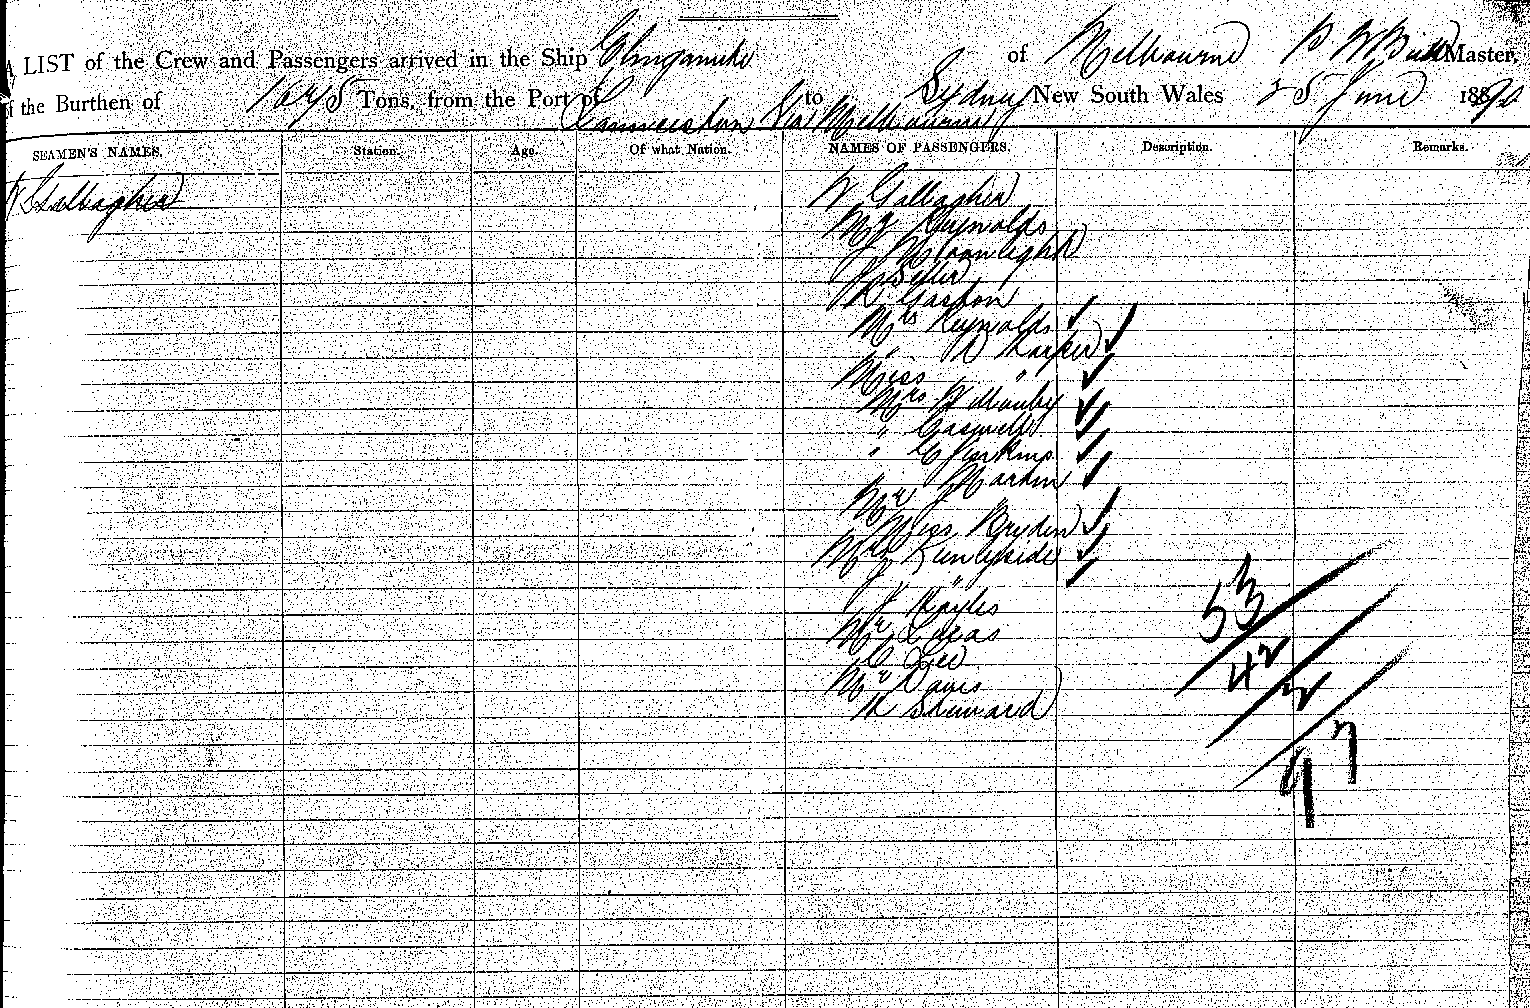 A LIST of the Crew and Passengers arrived in the Ship Elingamite of Melbourne Master,
of the Burthen of 1675 Tons, from the Port of Launceston Via Melbourne to Sydney New South Wales 25 June 1890
SEAMEN'S NAMES. Station. Age. Of what Nation. NAMES OF PASSENGERS. Description. Remarks.
W Gallagher
W Gallagher
Mr Reynolds
J Moonlight
Gordon
Mrs Reynolds
" R Harper
Miss "
Mrs Willoughby
" Caswell
" C Jenkins
Martin
Mr "
Miss Bryden
Mrs Kenlyside
J "
J Hayles
Mr Lucas
C
Mr Davis
53
42
2
97